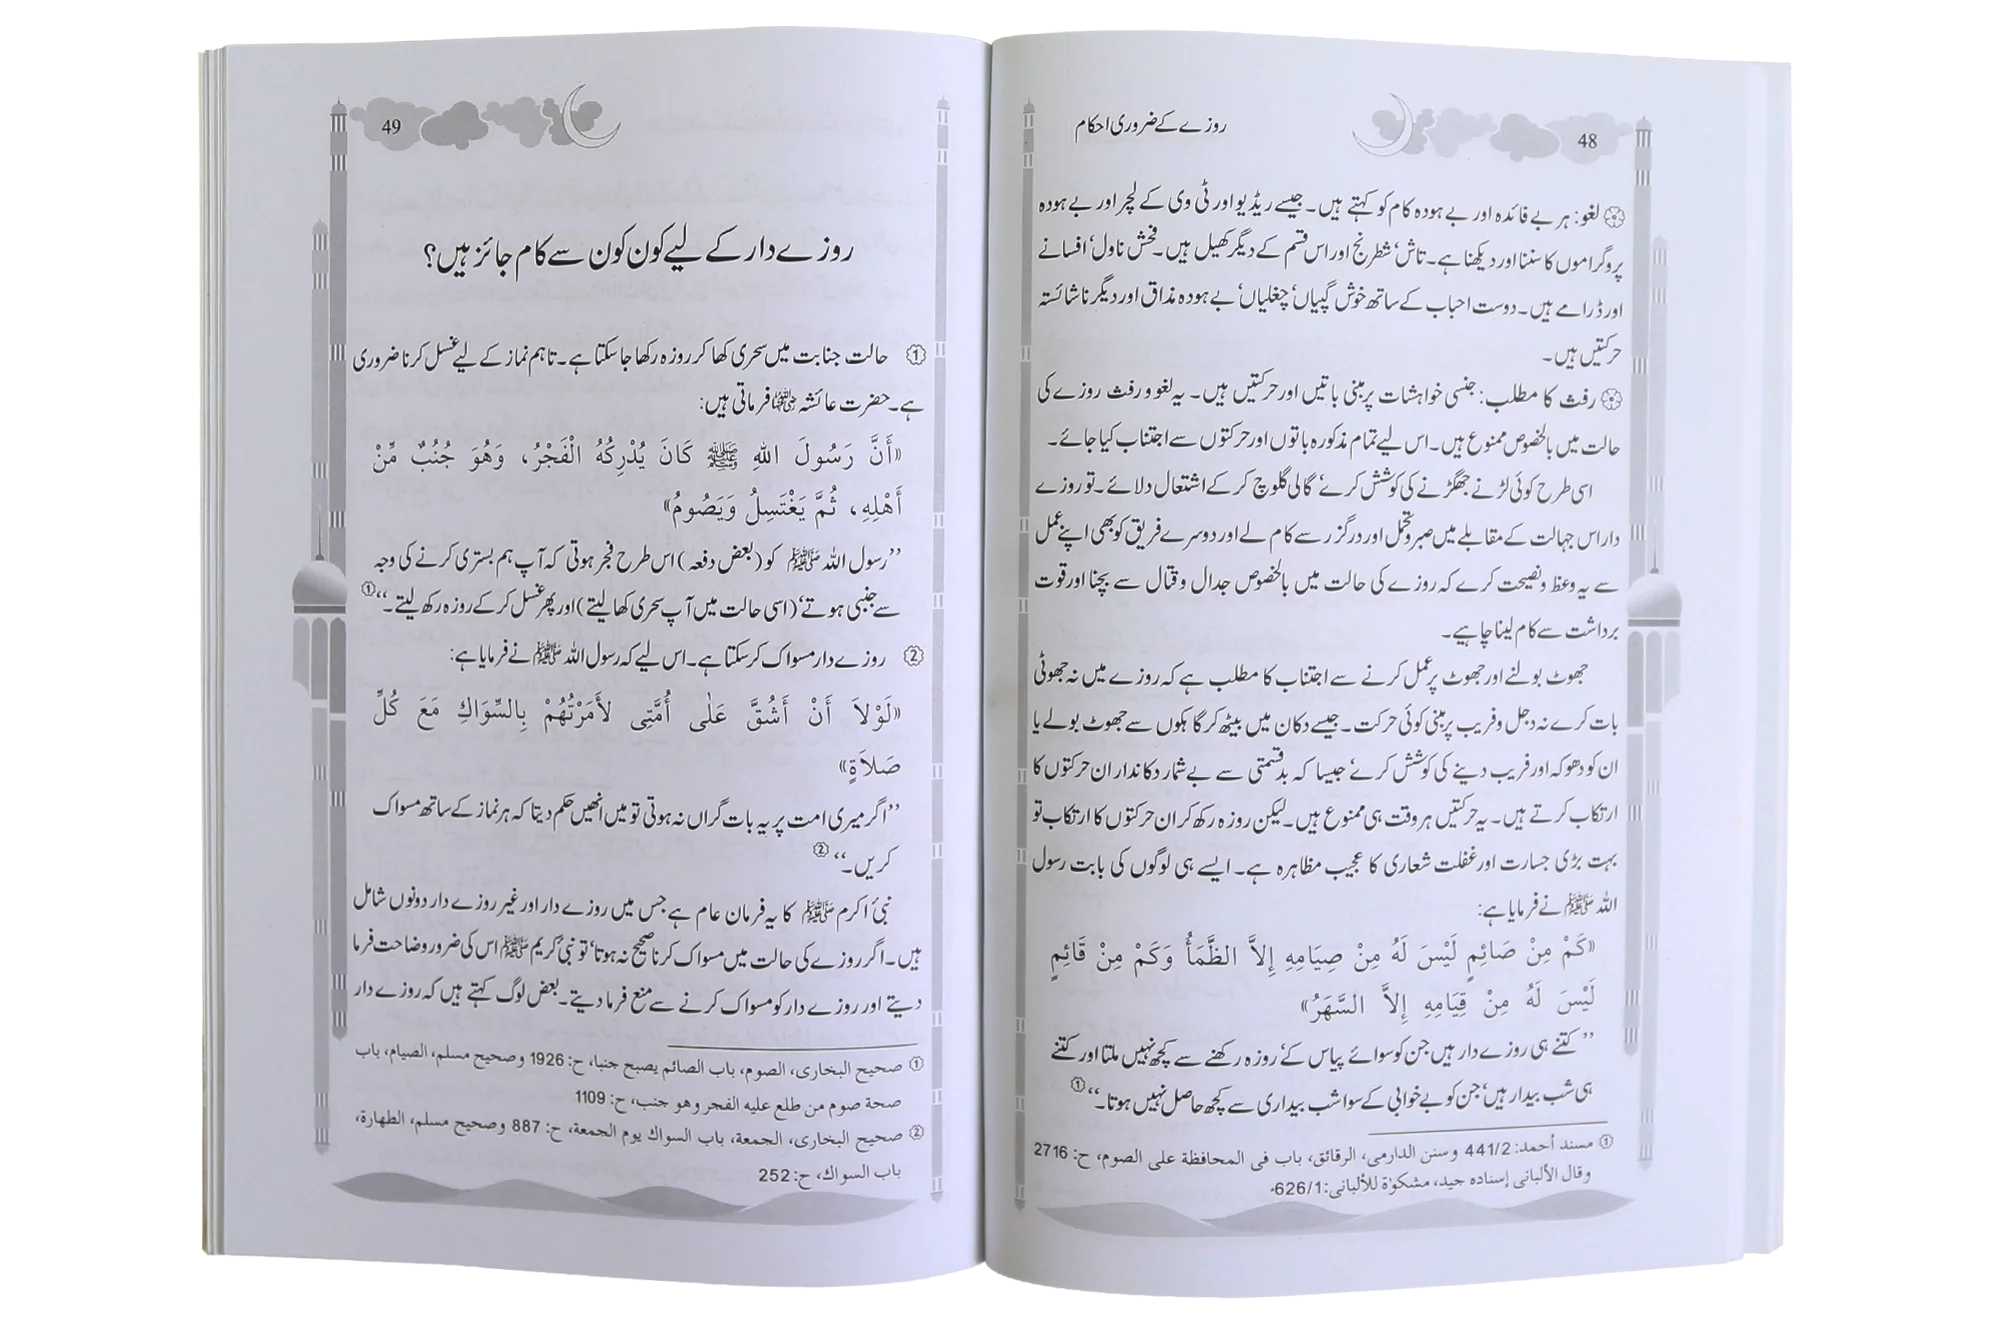 48
روزے کے ضروری احکام
لغو: ہر بے فائدہ اور بے ہودہ کام کو کہتے ہیں۔ جیسے ریڈیو اور ٹی وی کے لچر اور بے ہودہ
پروگراموں کا سننا اور دیکھنا ہے۔ تاش‘ شطرنج اور اس قسم کے دیگر کھیل ہیں۔ فحش ناول‘ افسانے
اور ڈرامے ہیں۔ دوست احباب کے ساتھ خوش گپیاں‘ چغلیاں‘ بے ہودہ مذاق اور دیگر ناشائستہ
حرکتیں ہیں۔
رفث کا مطلب: جنسی خواہشات پر مبنی باتیں اور حرکتیں ہیں۔ یہ لغو و رفث روزے کی
حالت میں بالخصوص ممنوع ہیں۔ اس لیے تمام مذکورہ باتوں اور حرکتوں سے اجتناب کیا جائے۔
اسی طرح کوئی لڑنے جھگڑنے کی کوشش کرے‘ گالی گلوچ کر کے اشتعال دلائے۔ تو روزے
دار اس جہالت کے مقابلے میں صبر و تحمل اور درگزر سے کام لے اور دوسرے فریق کو بھی اپنے عمل
سے یہ وعظ و نصیحت کرے کہ روزے کی حالت میں بالخصوص جدال و قتال سے بچنا اور قوت
برداشت سے کام لینا چاہیے۔
جھوٹ بولنے اور جھوٹ پر عمل کرنے سے اجتناب کا مطلب ہے کہ روزے میں نہ جھوٹی
بات کرے نہ دجل و فریب پر مبنی کوئی حرکت۔ جیسے دکان میں بیٹھ کر گاہکوں سے جھوٹ بولے یا
ان کو دھوکہ اور فریب دینے کی کوشش کرے‘ جیسا کہ بدقسمتی سے بے شمار دکاندار ان حرکتوں کا
ارتکاب کرتے ہیں۔ یہ حرکتیں ہر وقت ہی ممنوع ہیں۔ لیکن روزہ رکھ کر ان حرکتوں کا ارتکاب تو
بہت بڑی جسارت اور غفلت شعاری کا عجیب مظاہرہ ہے۔ ایسے ہی لوگوں کی بابت رسول
اللہ ﷺ نے فرمایا ہے:
«كَمْ مِنْ صَائِمٍ لَيْسَ لَهُ مِنْ صِيَامِهِ إِلاَّ الظَّمَأُ وَكَمْ مِنْ قَائِمٍ
لَيْسَ لَهُ مِنْ قِيَامِهِ إِلاَّ السَّهَرُ»
’’کتنے ہی روزے دار ہیں جن کو سوائے پیاس کے‘ روزہ رکھنے سے کچھ نہیں ملتا اور کتنے
ہی شب بیدار ہیں‘ جن کو بے خوابی کے سوا شب بیداری سے کچھ حاصل نہیں ہوتا۔‘‘①
① مسند أحمد: 441/2 وسنن الدارمى، الرقائق، باب فى المحافظة على الصوم، ح: 2716
وقال الألبانى إسناده جيد، مشكوة للألبانى: 626/1ء
49
روزے دار کے لیے کون کون سے کام جائز ہیں؟
① حالت جنابت میں سحری کھا کر روزہ رکھا جا سکتا ہے۔ تاہم نماز کے لیے غسل کرنا ضروری
ہے۔ حضرت عائشہ رضی اللہ عنہا فرماتی ہیں:
«أَنَّ رَسُولَ اللهِ ﷺ كَانَ يُدْرِكُهُ الْفَجْرُ، وَهُوَ جُنُبٌ مِّنْ
أَهْلِهِ، ثُمَّ يَغْتَسِلُ وَيَصُومُ»
’’رسول اللہ ﷺ کو (بعض دفعہ) اس طرح فجر ہوتی کہ آپ ہم بستری کرنے کی وجہ
سے جنبی ہوتے‘ (اسی حالت میں آپ سحری کھا لیتے) اور پھر غسل کر کے روزہ رکھ لیتے۔‘‘①
② روزے دار مسواک کر سکتا ہے۔ اس لیے کہ رسول اللہ ﷺ نے فرمایا ہے:
«لَوْلاَ أَنْ أَشُقَّ عَلٰى أُمَّتِى لأَمَرْتُهُمْ بِالسِّوَاكِ مَعَ كُلِّ
صَلاَةٍ»
’’اگر میری امت پر یہ بات گراں نہ ہوتی تو میں انھیں حکم دیتا کہ ہر نماز کے ساتھ مسواک
کریں۔‘‘②
نبیٔ اکرم ﷺ کا یہ فرمان عام ہے جس میں روزے دار اور غیر روزے دار دونوں شامل
ہیں۔ اگر روزے کی حالت میں مسواک کرنا صحیح نہ ہوتا‘ تو نبیٔ کریم ﷺ اس کی ضرور وضاحت فرما
دیتے اور روزے دار کو مسواک کرنے سے منع فرما دیتے۔ بعض لوگ کہتے ہیں کہ روزے دار
① صحيح البخارى، الصوم، باب الصائم يصبح جنبا، ح: 1926 وصحيح مسلم، الصيام، باب
صحة صوم من طلع عليه الفجر وهو جنب، ح: 1109
② صحيح البخارى، الجمعة، باب السواك يوم الجمعة، ح: 887 وصحيح مسلم، الطهارة،
باب السواك، ح: 252